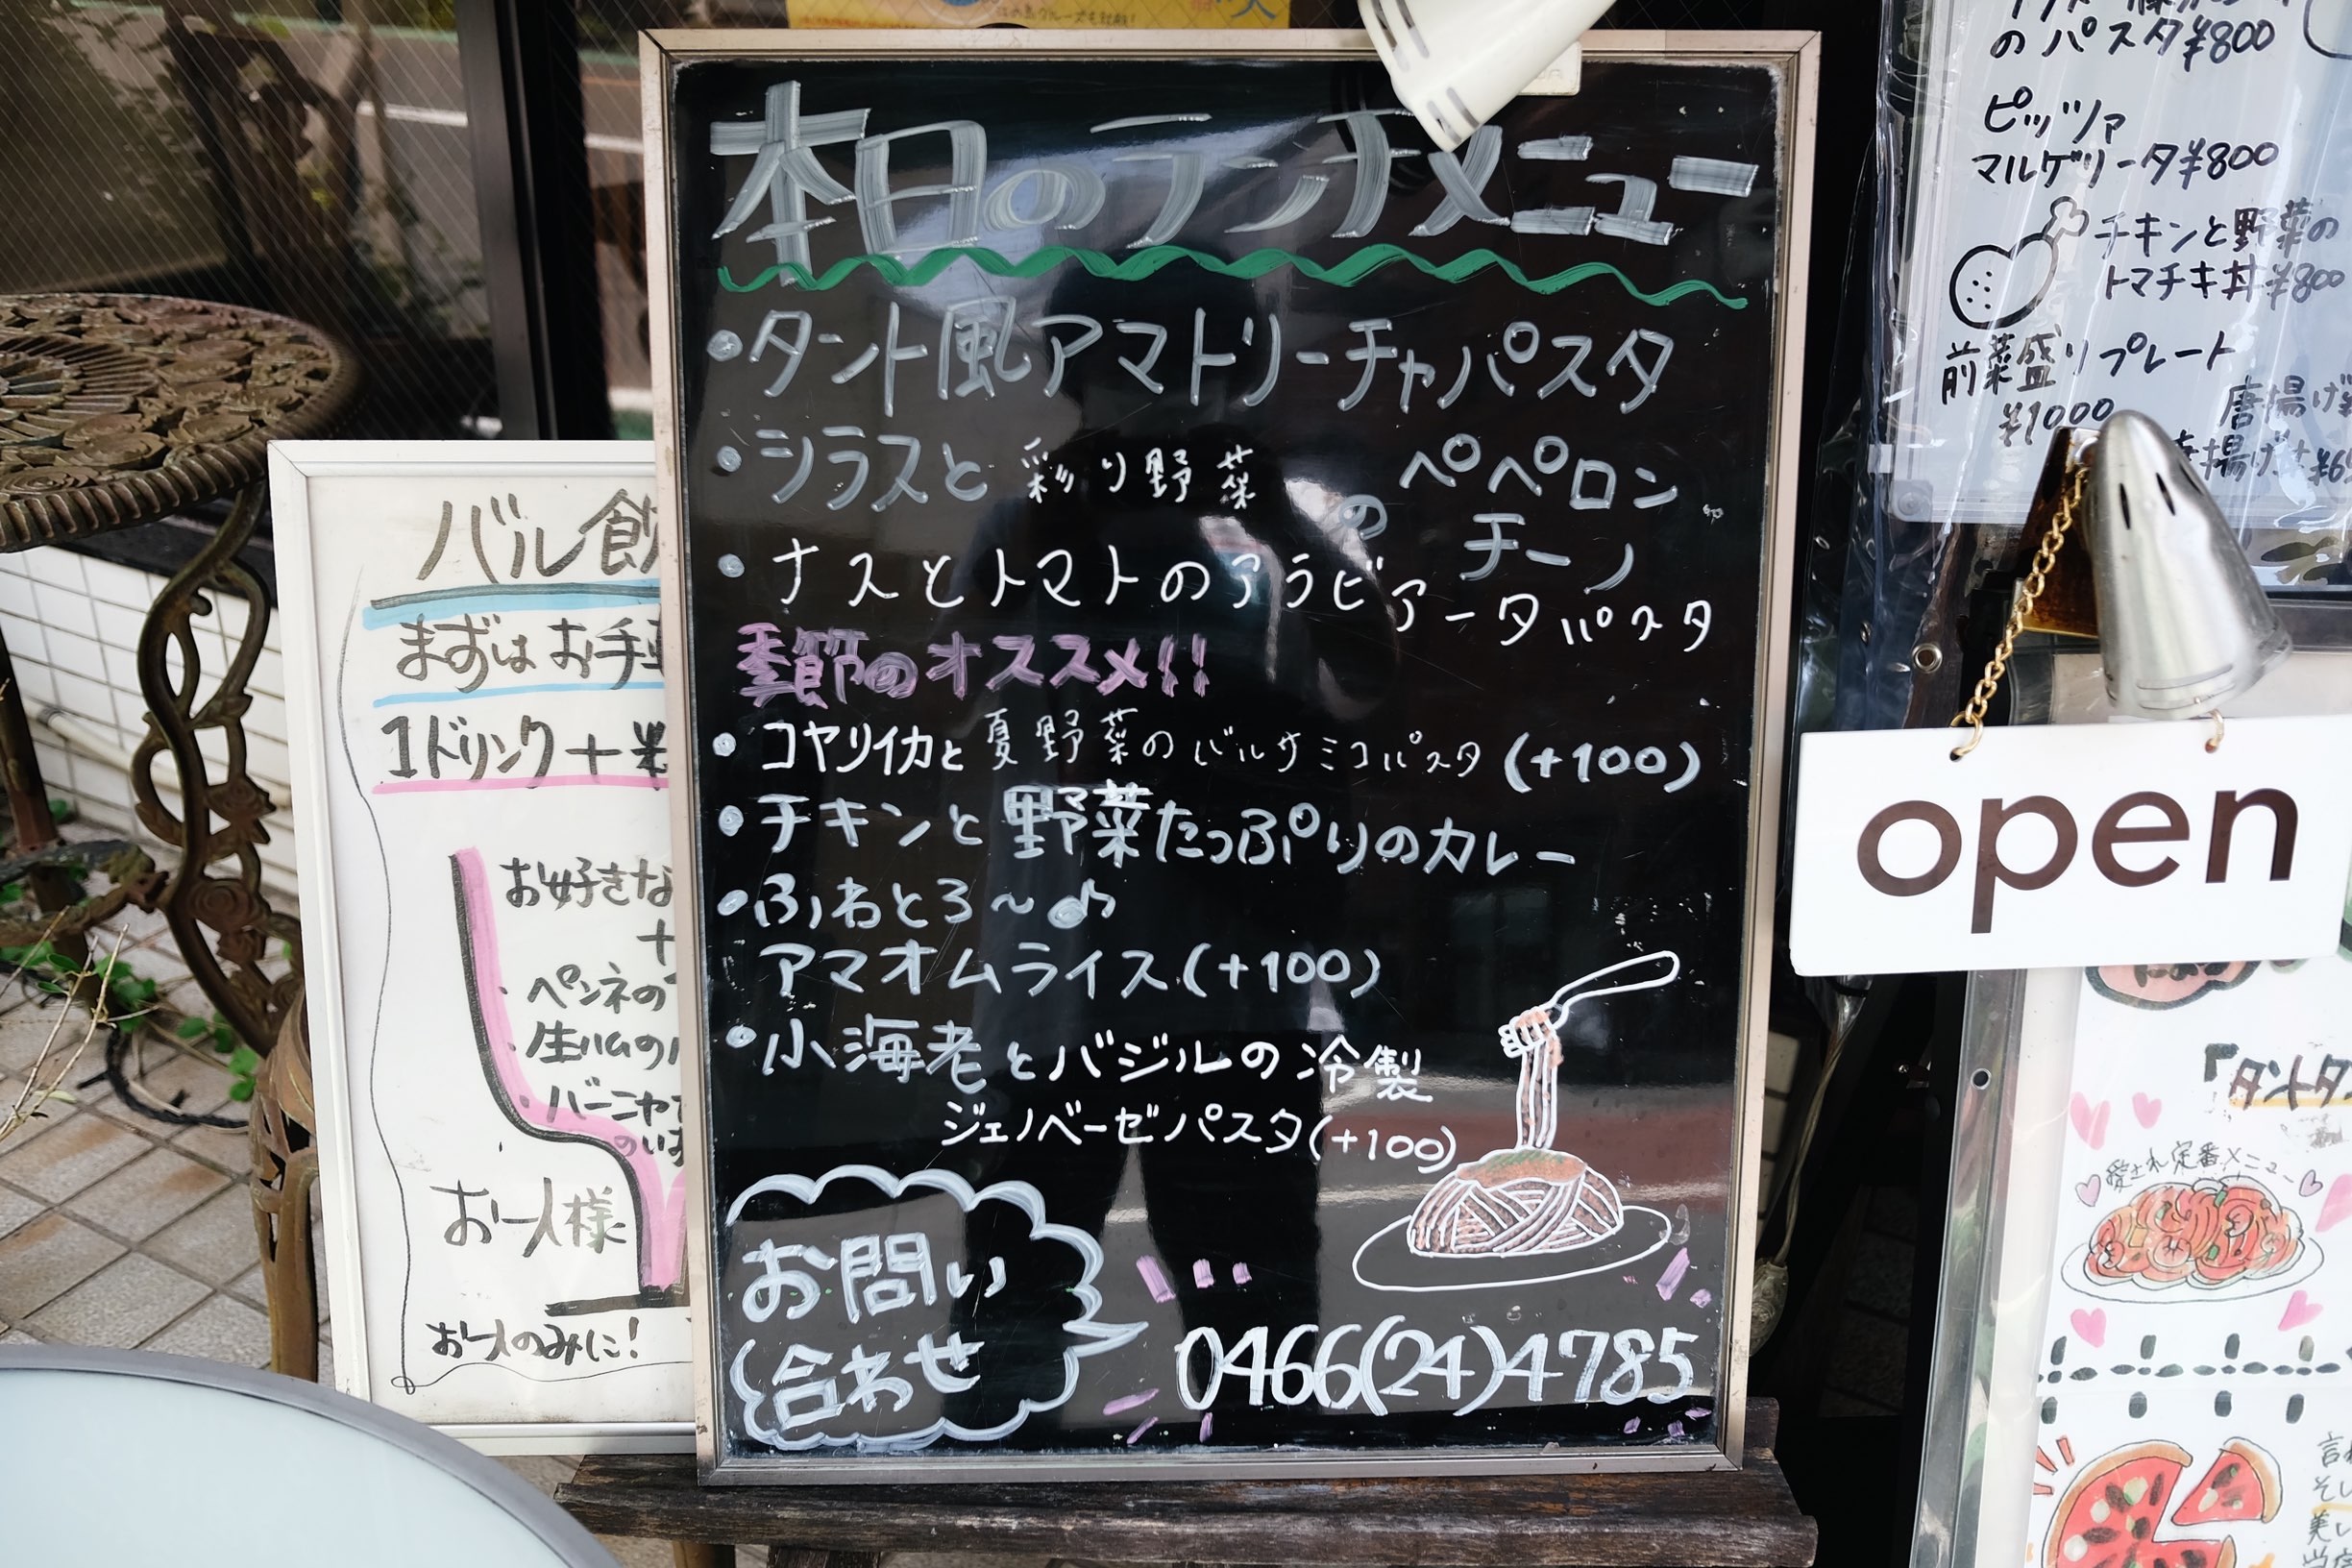 本日のランチメニュー
・タント風アマトリーチャパスタ
・シラスと彩り野菜のペペロン
チーノ
・ナスとトマトのアラビアータパスタ
季節のオススメ!!
・コヤリイカと夏野菜のバルサミコパスタ(+100)
・チキンと野菜たっぷりのカレー
・ふわとろ～♪
アマオムライス(+100)
・小海老とバジルの冷製
ジェノベーゼパスタ(+100)
お問い
合わせ
0466(24)4785
バル飲
まずはお手
1ドリンク+¥
お好きな
+
・ペンネの
・生ハムの
・バーニャ
お一人様
お一人のみに!
のパスタ¥800
ピッツァ
マルゲリータ¥800
チキンと野菜の
トマチキ丼¥800
前菜盛りプレート
¥1000
唐揚げ
揚げ
open
『タントタ
愛され定番メニュー